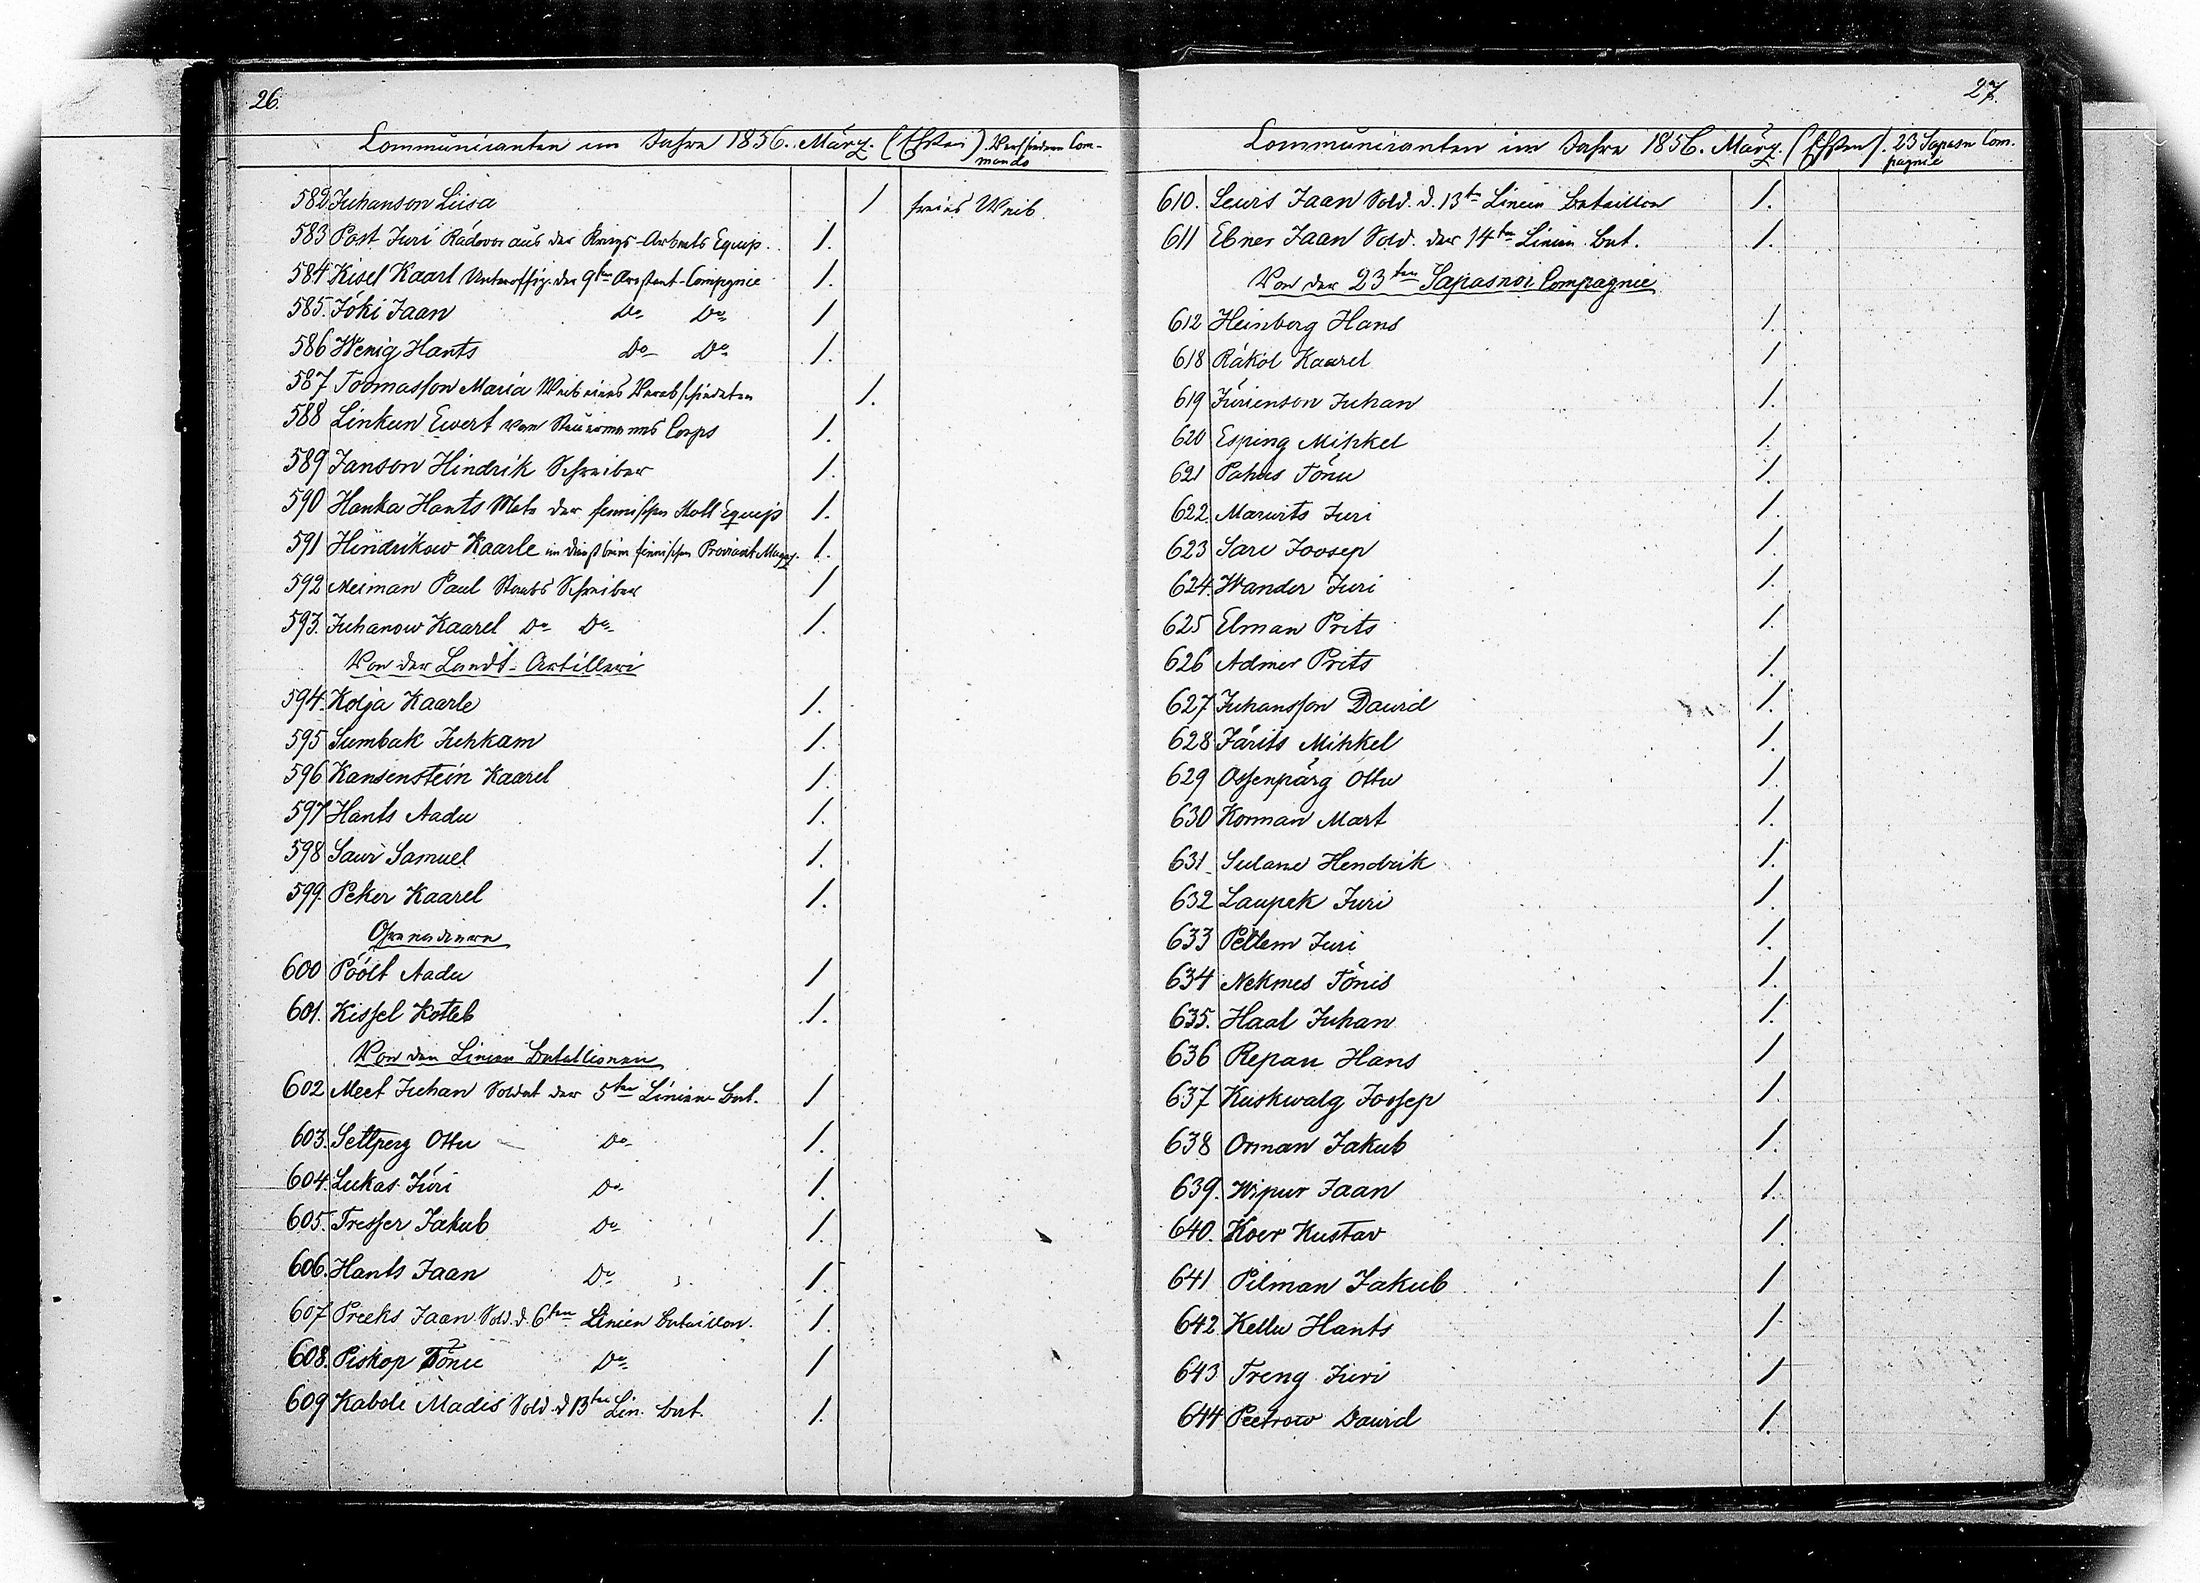 26.
Communicanten im Jahre 1856. März. (Ehsten). Verschiedene Com-
mando
582 Juhanson Liisa / freies Weib
583 Post Juri Rádovoi aus der Kriegs-Arbeits Equip. /.
584 Kisel Kaarl Unteroffiz. der 9ten Arestant-Compgnie /.
585. Jöki Jaan Do Do /
586 Wenig Hants Do Do /.
587 Toomasson Maria Weib eines Verabschiedeten /.
588 Linkun Ewert vom Steuermanns Corps /.
589 Janson Hindrik Schreiber /.
590 Hanka Hants Mats der finnischen Equip /.
591 Hindrikow Kaarle im Dienst beim finnischen Proviant Magaz. /.
592 Meiman Paul Staabs Schreiber /
593. Juhanow Kaarel Do Do /.
Von der Landt-Artilleri
594. Kolja Kaarle /.
595 Sumbak Juhkam /.
596 Kansenstein Kaarel /.
597 Hants Aadu /.
598 Sawi Samuel /.
599. Peker Kaarel /.
Grenadiere
600 Póólt Aadu /
601. Kissel Kotleb /.
Von den Linien Batallionen
602 Meet Juhan Soldat der 5ten Linien Bat. /
603. Seltperg Ottu Do /.
604. Lukas Jüri Do /.
605. Tresser Jakub Do /.
606. Hants Jaan Do /.
607 Preeks Jaan Sold. d. 6ten Linien Bataillon. /.
608. Piskop Tõnu Do /
609 Kaboli Madis Sold. d 13ten Lin. Bat. /.
27.
Communicanten im Jahre 1856. März. (Ehsten). 23 Sapasn Com.
pagnie
610. Leuis Jaan Sold. d. 13ten Linien Bataillon /.
611 Ebner Jaan Sold. der 14ten Linien Bat. /.
Von der 23ten Sapasnoi Compagnie
612 Heinberg Hans /.
618 Räköl Kaarel /
619 Jürienson Juhan /.
620 Esping Mihkel /.
621 Pahus Tõnu /.
622. Marwits Juri /.
623 Sari Joosep /.
624. Wander Juri /.
625 Elman Prits /.
626 Admer Prits /.
627 Juhansson Dawid /.
628 Järits Mihkel /.
629 Ossenpärg Ottu /.
630 Korman Mart /.
631. Sulane Hendrik /.
632 Laupek Juri /.
633 Pettem Juri /.
634 Nekmes Tõnis /.
635. Haal Juhan /.
636 Repan Hans /
637 Kuskwalg Joosep /.
638 Orman Jakub /.
639. Wipur Jaan /.
640. Koer Kustav /.
641 Pilman Jakub /
642 Kellu Hants /.
643 Treng Juri /
644 Peetrow Dawid /.